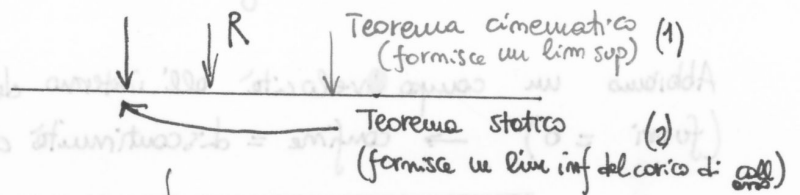 R
Teorema cinematico (1)
(fornisce un lim sup)
Teorema statico (2)
(fornisce un lim inf del carico di coll